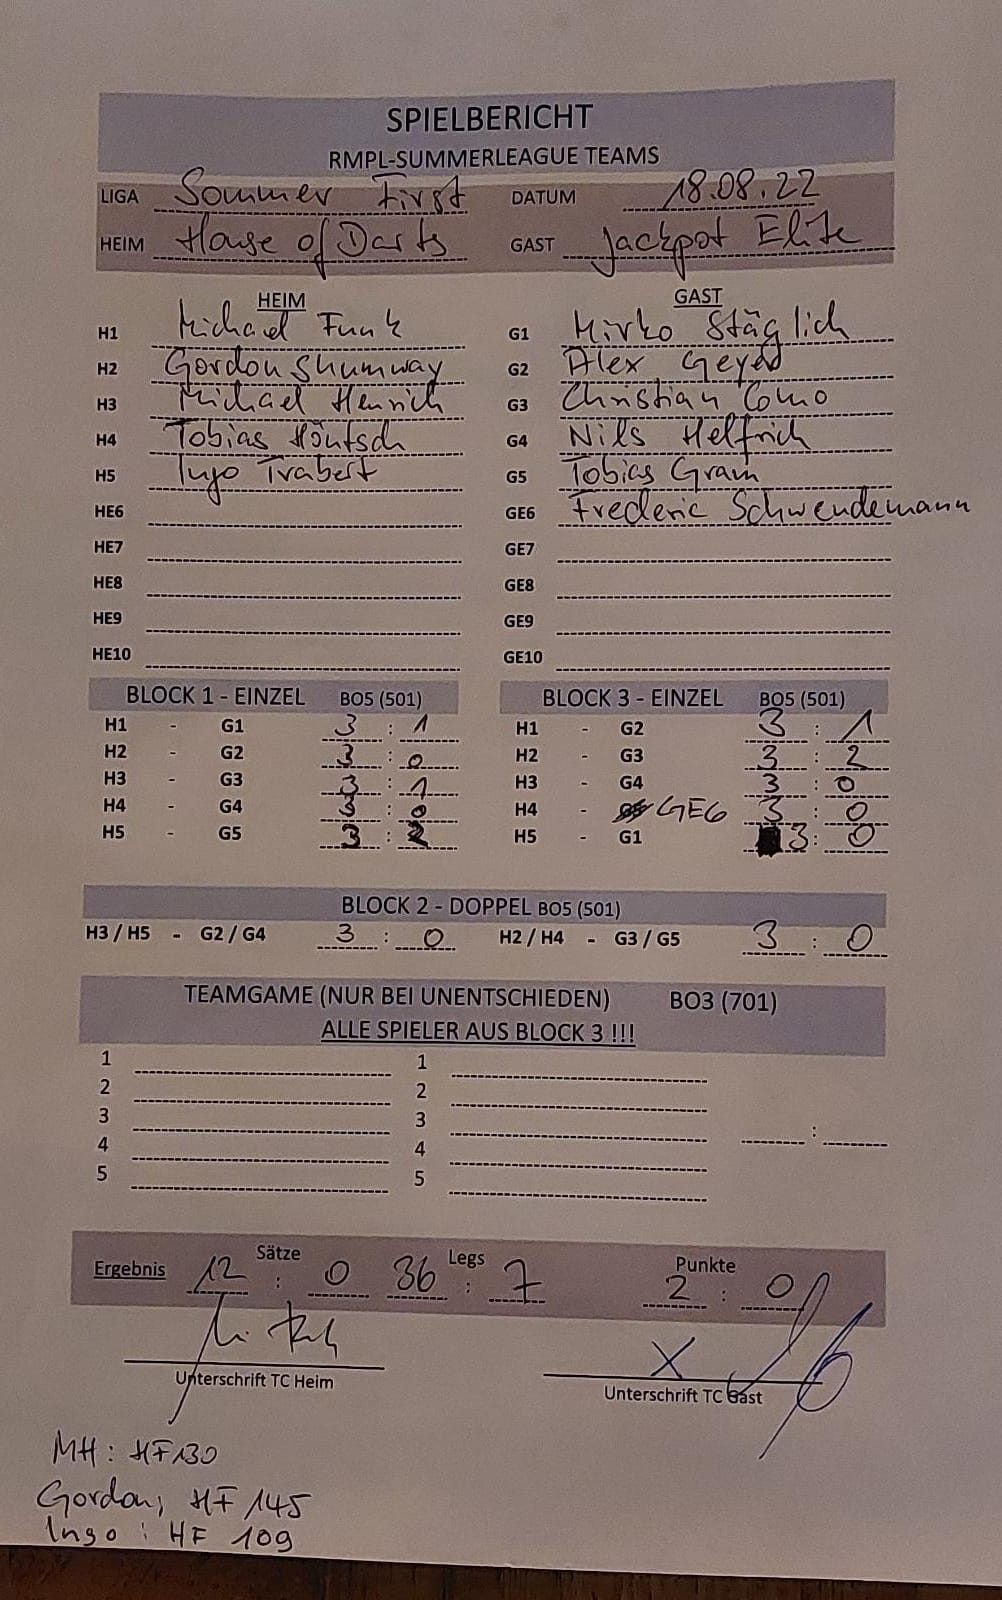 SPIELBERICHT
RMPL-SUMMERLEAGUE TEAMS
LIGA Sommer First DATUM 18.08.22
HEIM House of Darts GAST Jackpot Elite
HEIM GAST
H1 Michael Funk G1 Mirko Stäglich
H2 Gordon Shumway G2 Alex Geyer
H3 Michael Henrich G3 Christian Como
H4 Tobias Höntsch G4 Nils Helfrich
H5 Ingo Trabert G5 Tobias Gram
HE6 GE6 Frederic Schwendemann
HE7 GE7
HE8 GE8
HE9 GE9
HE10 GE10
BLOCK 1 - EINZEL BO5 (501) BLOCK 3 - EINZEL BO5 (501)
H1 - G1 3 : 1 H1 - G2 3 : 1
H2 - G2 3 : 0 H2 - G3 3 : 2
H3 - G3 3 : 1 H3 - G4 3 : 0
H4 - G4 3 : 0 H4 - GE6 3 : 0
H5 - G5 3 : 2 H5 - G1 3 : 0
BLOCK 2 - DOPPEL BO5 (501)
H3 / H5 - G2 / G4 3 : 0 H2 / H4 - G3 / G5 3 : 0
TEAMGAME (NUR BEI UNENTSCHIEDEN) BO3 (701)
ALLE SPIELER AUS BLOCK 3 !!!
1 1
2 2
3 3 :
4 4
5 5
Sätze Legs Punkte
Ergebnis 12 : 0 36 : 7 2 : 0
X
Unterschrift TC Heim Unterschrift TC Gast
MH: HF130
Gordon; HF 145
Ingo : HF 109